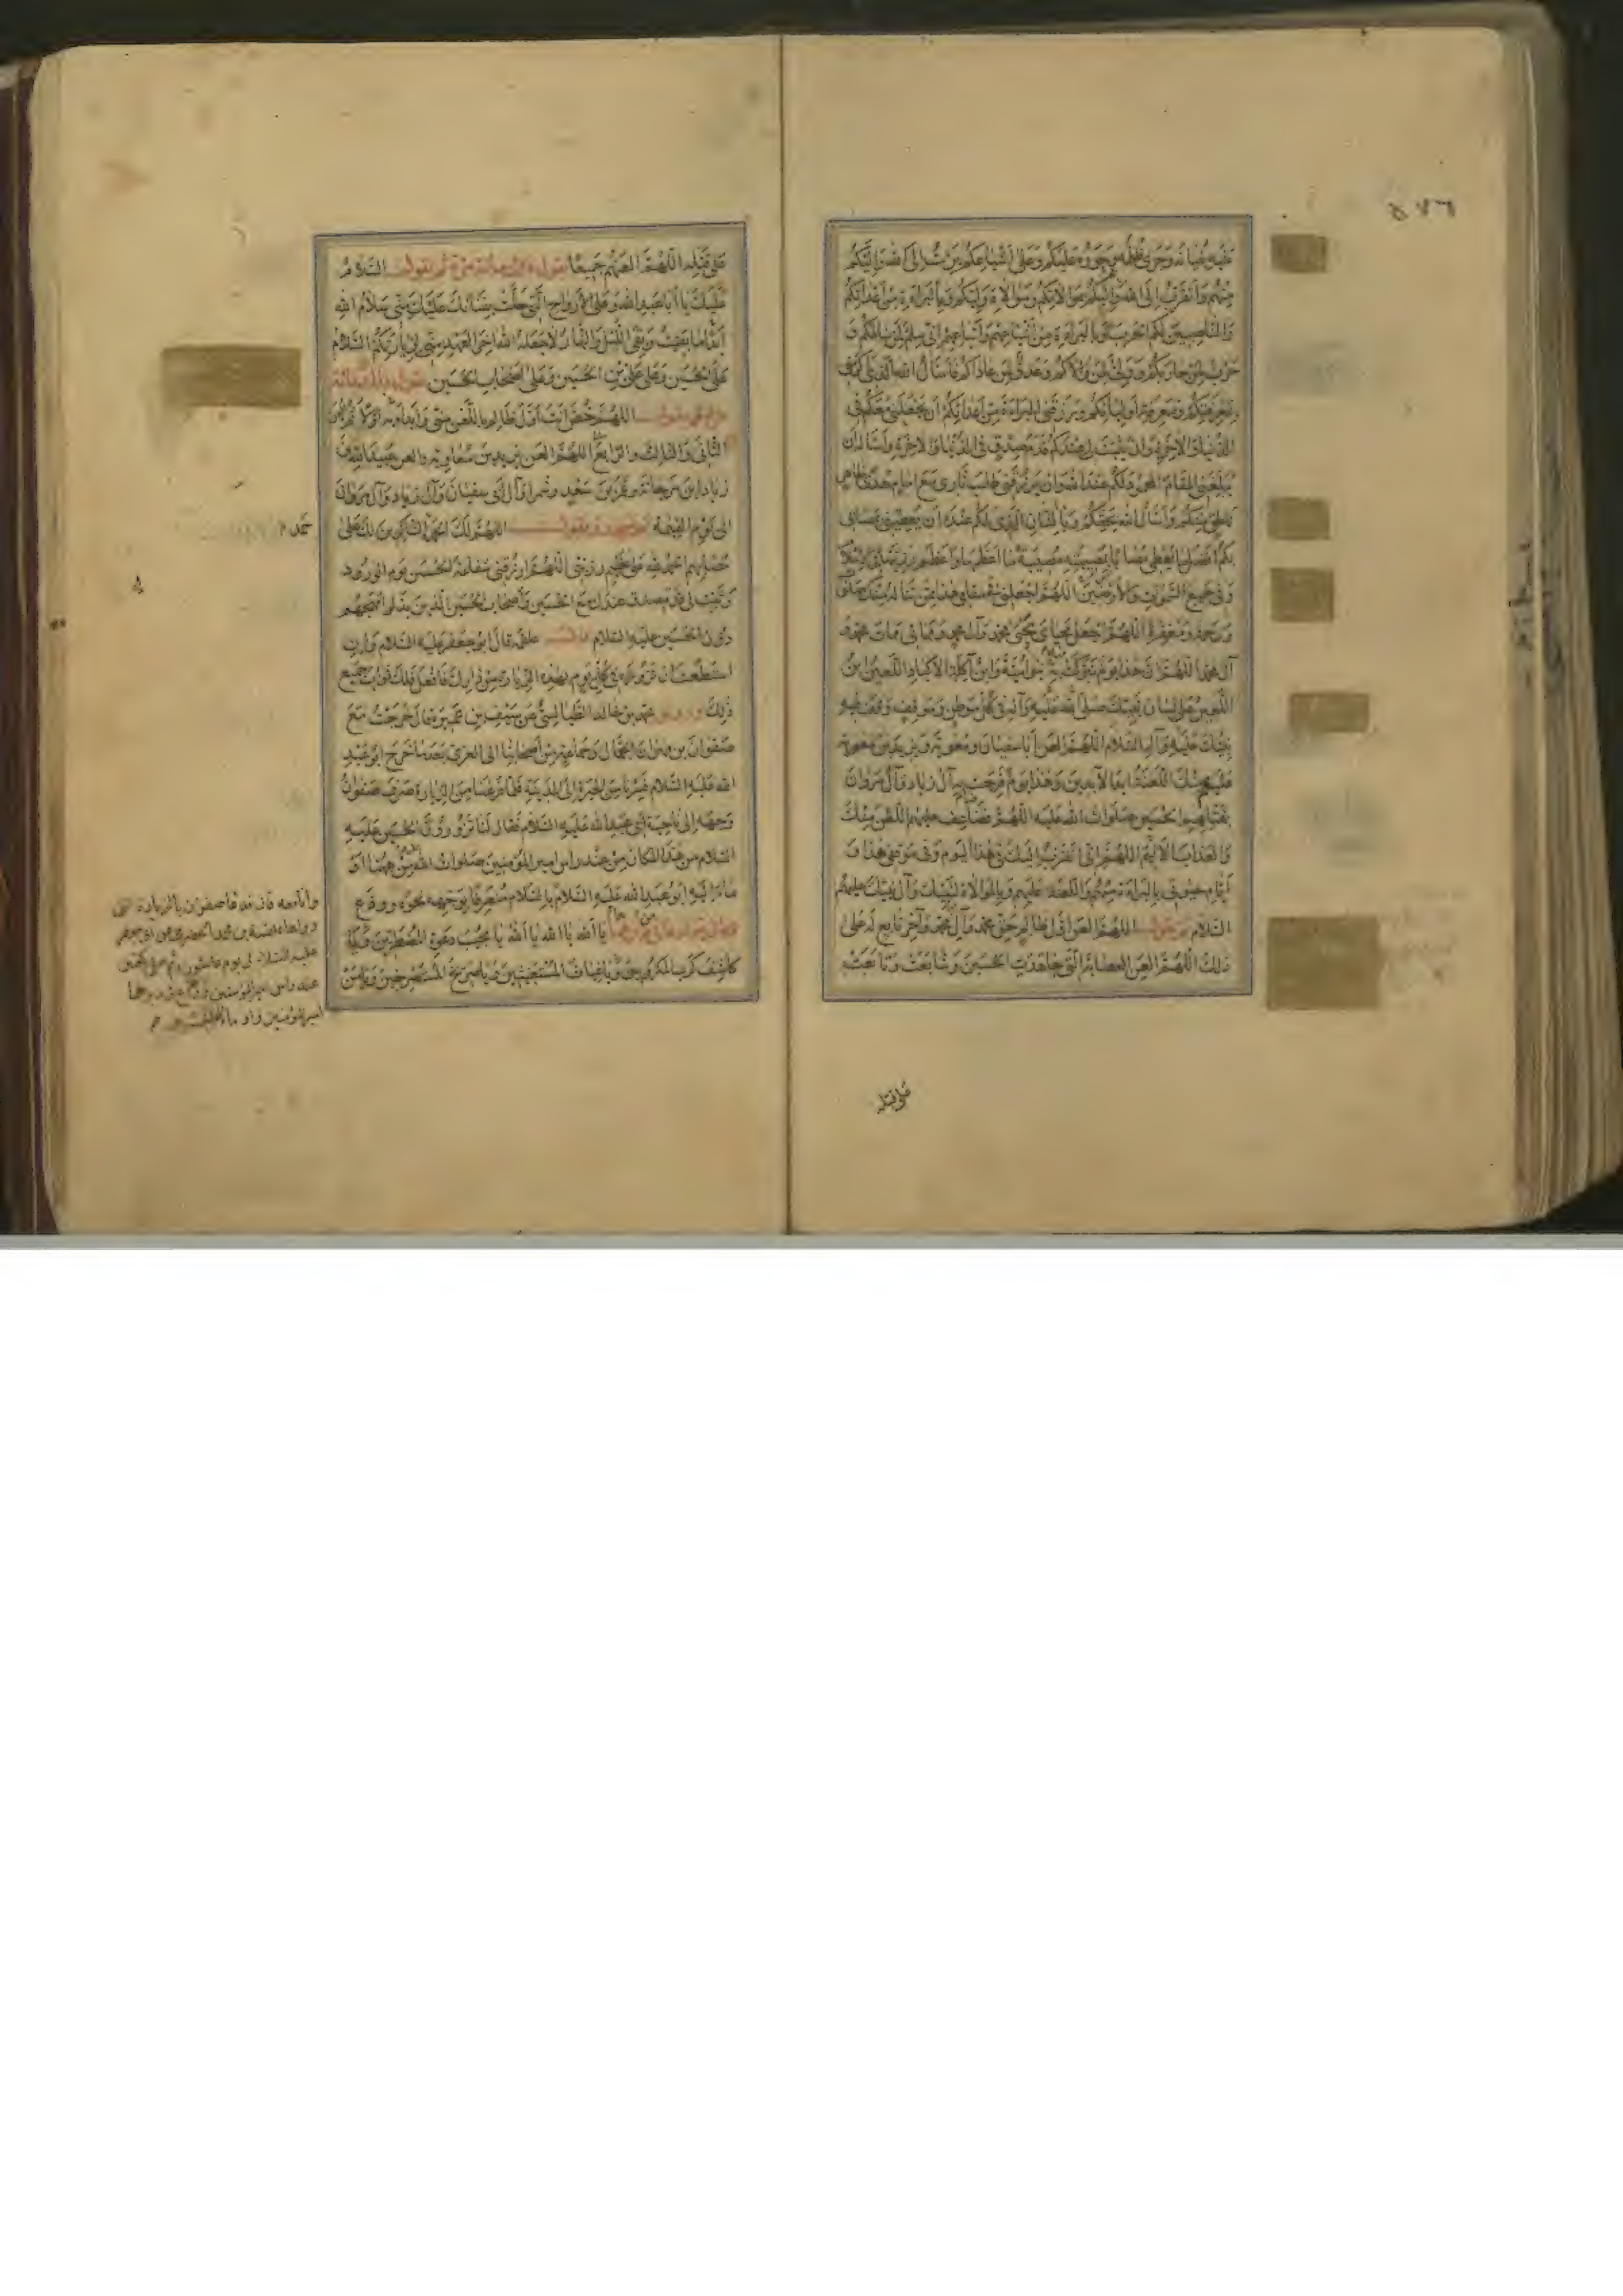 ٥٧٦
عليه بنيانه وجرى ظلمه وجوره عليكم وعلى أشياعكم برئت إلى الله وإليكم
منهم وأتقرب إلى الله ثم إليكم بموالاتكم وموالاة وليكم وبالبراءة من أعدائكم
والناصبين لكم الحرب وبالبراءة من أشياعهم وأتباعهم إني سلم لمن سالمكم و
حرب لمن حاربكم وولي لمن والاكم وعدو لمن عاداكم فأسأل الله الذي أكرمني
بمعرفتكم ومعرفة أوليائكم ورزقني البراءة من أعدائكم أن يجعلني معكم في
الدنيا والآخرة وأن يثبت لي عندكم قدم صدق في الدنيا والآخرة وأسأله أن
يبلغني المقام المحمود لكم عند الله وأن يرزقني طلب ثاري مع إمام هدى ظاهر
ناطق منكم وأسأل الله بحقكم وبالشأن الذي لكم عنده أن يعطيني بمصابي
بكم أفضل ما يعطي مصابا بمصيبته مصيبة ما أعظمها وأعظم رزيتها في الإسلام
وفي جميع السموات والأرضين اللهم اجعلني في مقامي هذا ممن تناله منك صلوات
ورحمة ومغفرة اللهم اجعل محياي محيى محمد وآل محمد ومماتي ممات محمد و
آل محمد اللهم إن هذا يوم تبركت به بنو أمية وابن آكلة الأكباد اللعين بن
اللعين على لسان نبيك صلى الله عليه وآله في كل موطن وموقف وقف فيه
نبيك عليه وآله السلام اللهم العن أبا سفيان ومعوية ويزيد بن معوية
عليهم منك اللعنة أبد الآبدين وهذا يوم فرحت به آل زياد وآل مروان
بقتلهم الحسين صلوات الله عليه اللهم فضاعف عليهم اللعن منك
والعذاب الأليم اللهم إني أتقرب إليك في هذا اليوم وفي موقفي هذا و
أيام حيوتي بالبراءة منهم واللعنة عليهم وبالموالاة لنبيك وآل نبيك عليهم
السلام ثم يقول اللهم العن أول ظالم ظلم حق محمد وآل محمد وآخر تابع له على
ذلك اللهم العن العصابة التي جاهدت الحسين وشايعت وتابعت
على قتله
على قتله اللهم العنهم جميعا يقول ذلك مائة مرة ثم يقول السلام
عليك يا أبا عبد الله وعلى الأرواح التي حلت بفنائك عليك مني سلام الله
أبدا ما بقيت وبقي الليل والنهار ولا جعله الله آخر العهد مني لزيارتكم السلام
على الحسين وعلى علي بن الحسين وعلى أصحاب الحسين يقول ذلك مائة
مرة ثم يقول اللهم خص أنت أول ظالم باللعن مني وابدأ به أولا ثم
الثاني والثالث والرابع اللهم العن يزيد بن معاوية والعن عبيد الله بن
زياد وابن مرجانة وعمر بن سعيد وشمرا وآل أبي سفيان وآل زياد وآل مروان
إلى يوم القيمة ثم تسجد وتقول اللهم لك الحمد حمد الشاكرين لك على
مصابهم الحمد لله على عظيم رزيتي اللهم ارزقني شفاعة الحسين يوم الورود
وثبت لي قدم صدق عندك مع الحسين وأصحاب الحسين الذين بذلوا مهجهم
دون الحسين عليه السلام قال علقمة قال أبو جعفر عليه السلام وإن
استطعت أن تزوره في كل يوم بهذه الزيارة من دارك فافعل فلك ثواب جميع
ذلك وروى محمد بن خالد الطيالسي عن سيف بن عميرة قال خرجت مع
صفوان بن مهران الجمال وجماعة من أصحابنا إلى الغري بعد ما خرج أبو عبد
الله عليه السلام فسرنا من الحيرة إلى المدينة فلما فرغنا من الزيارة صرف صفوان
وجهه إلى ناحية أبي عبد الله عليه السلام فقال لنا تزورون الحسين عليه
السلام من هذا المكان من عند رأس أمير المؤمنين صلوات الله عليه من ههنا أو
ما إليه أبو عبد الله عليه السلام بالسلام منصرفا بوجهه نحوه وودع
يا الله يا الله يا الله يا مجيب دعوة المضطرين ويا
كاشف كرب المكروبين ويا غياث المستغيثين ويا صريخ المستصرخين
حمد
وأنا معه قال فدعا صفوان بالزيارة التي
رواها علقمة بن محمد الحضرمي عن أبي جعفر
عليه السلام في يوم عاشورا ثم صلى ركعتين
عند رأس أمير المؤمنين وودع في دبرهما
أمير المؤمنين